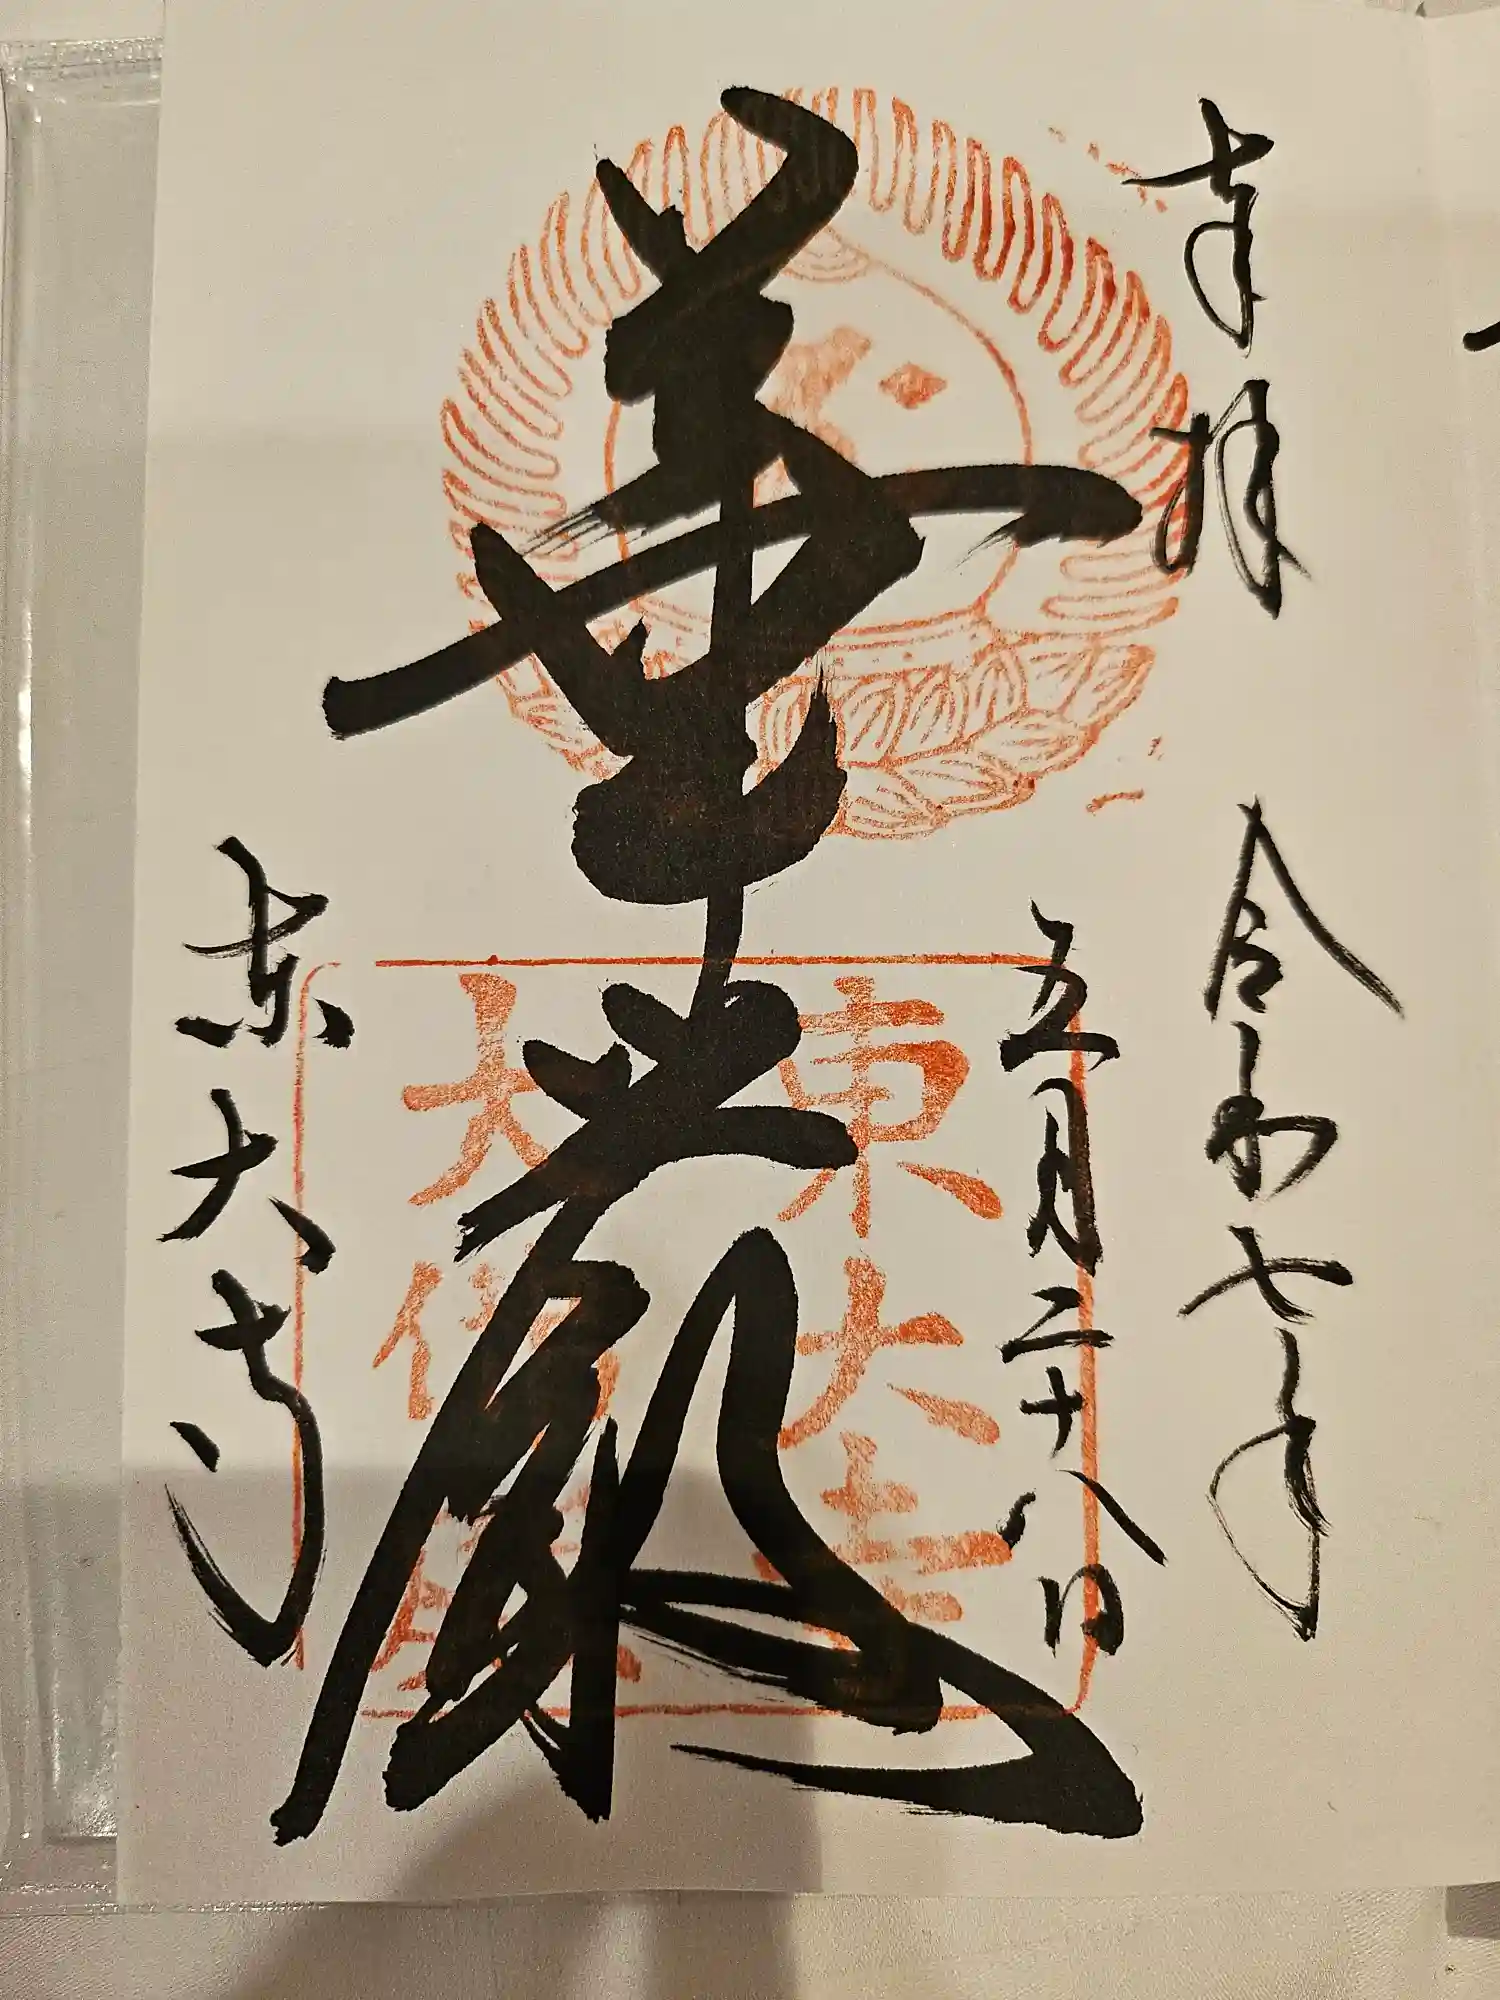 奉拝
令和七年
五月二十八日
華厳
東大寺
大佛殿
東大寺